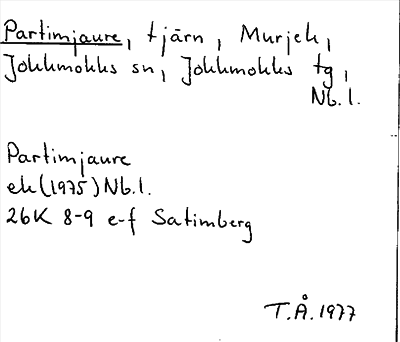 Partimjaure, tjärn, Murjek,
Jokkmokks sn, Jokkmokks tg,
Nb.l.
Partimjaure
ek (1975) Nb.l.
26K 8-9 e-f Satimberg
T.Å. 1977